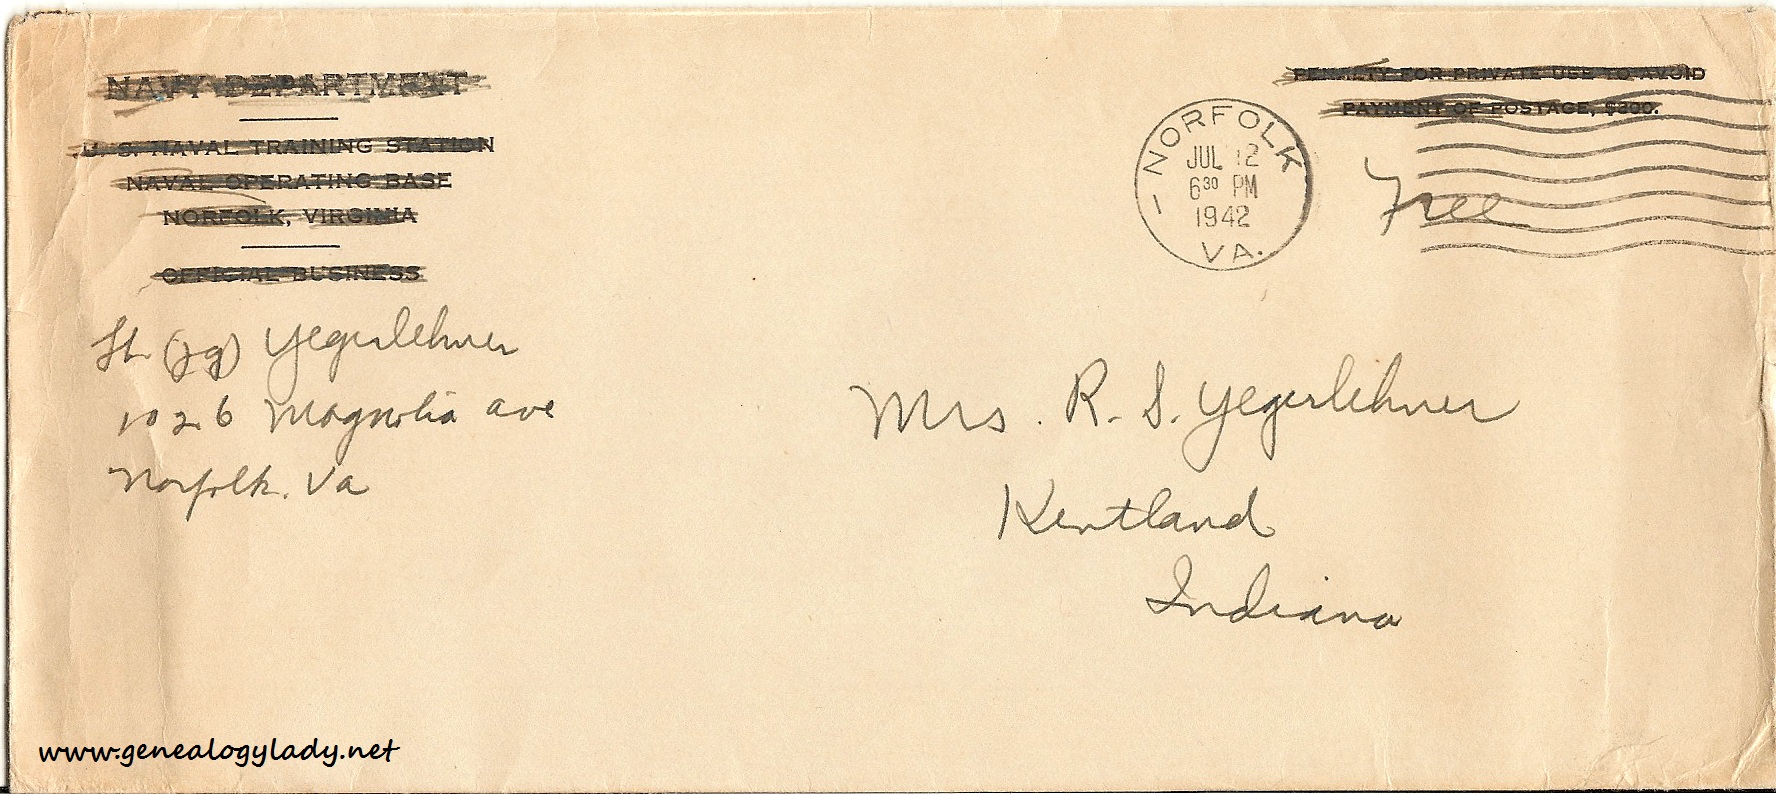 NAVY DEPARTMENT
U. S. NAVAL TRAINING STATION
NAVAL OPERATING BASE
NORFOLK, VIRGINIA
OFFICIAL BUSINESS
PENALTY FOR PRIVATE USE TO AVOID
PAYMENT OF POSTAGE, $300.
NORFOLK
JUL 12
6 30 PM
1942
VA.
Free
Lt (jg) Yegerlehner
1026 Magnolia ave
Norfolk. Va
Mrs. R. S. Yegerlehner
Kentland
Indiana
www.genealogylady.net